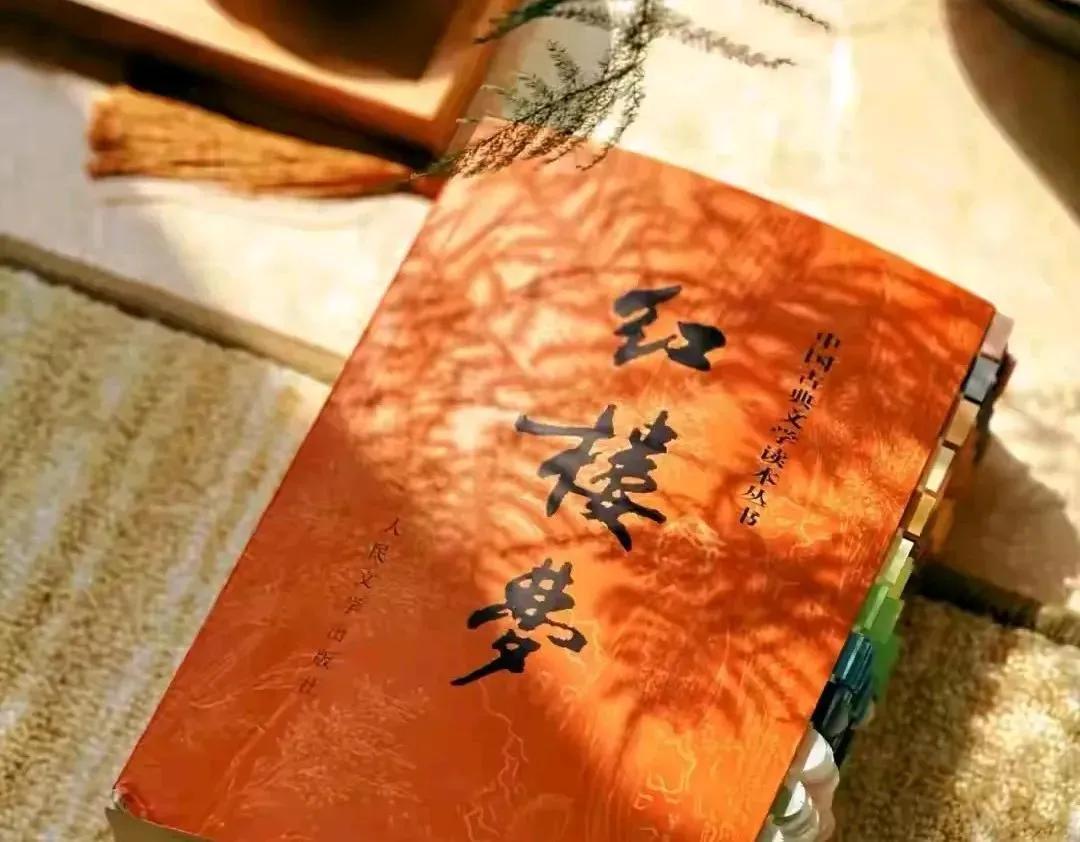 中国古典文学读本丛书
红楼夢
人民文学出版社